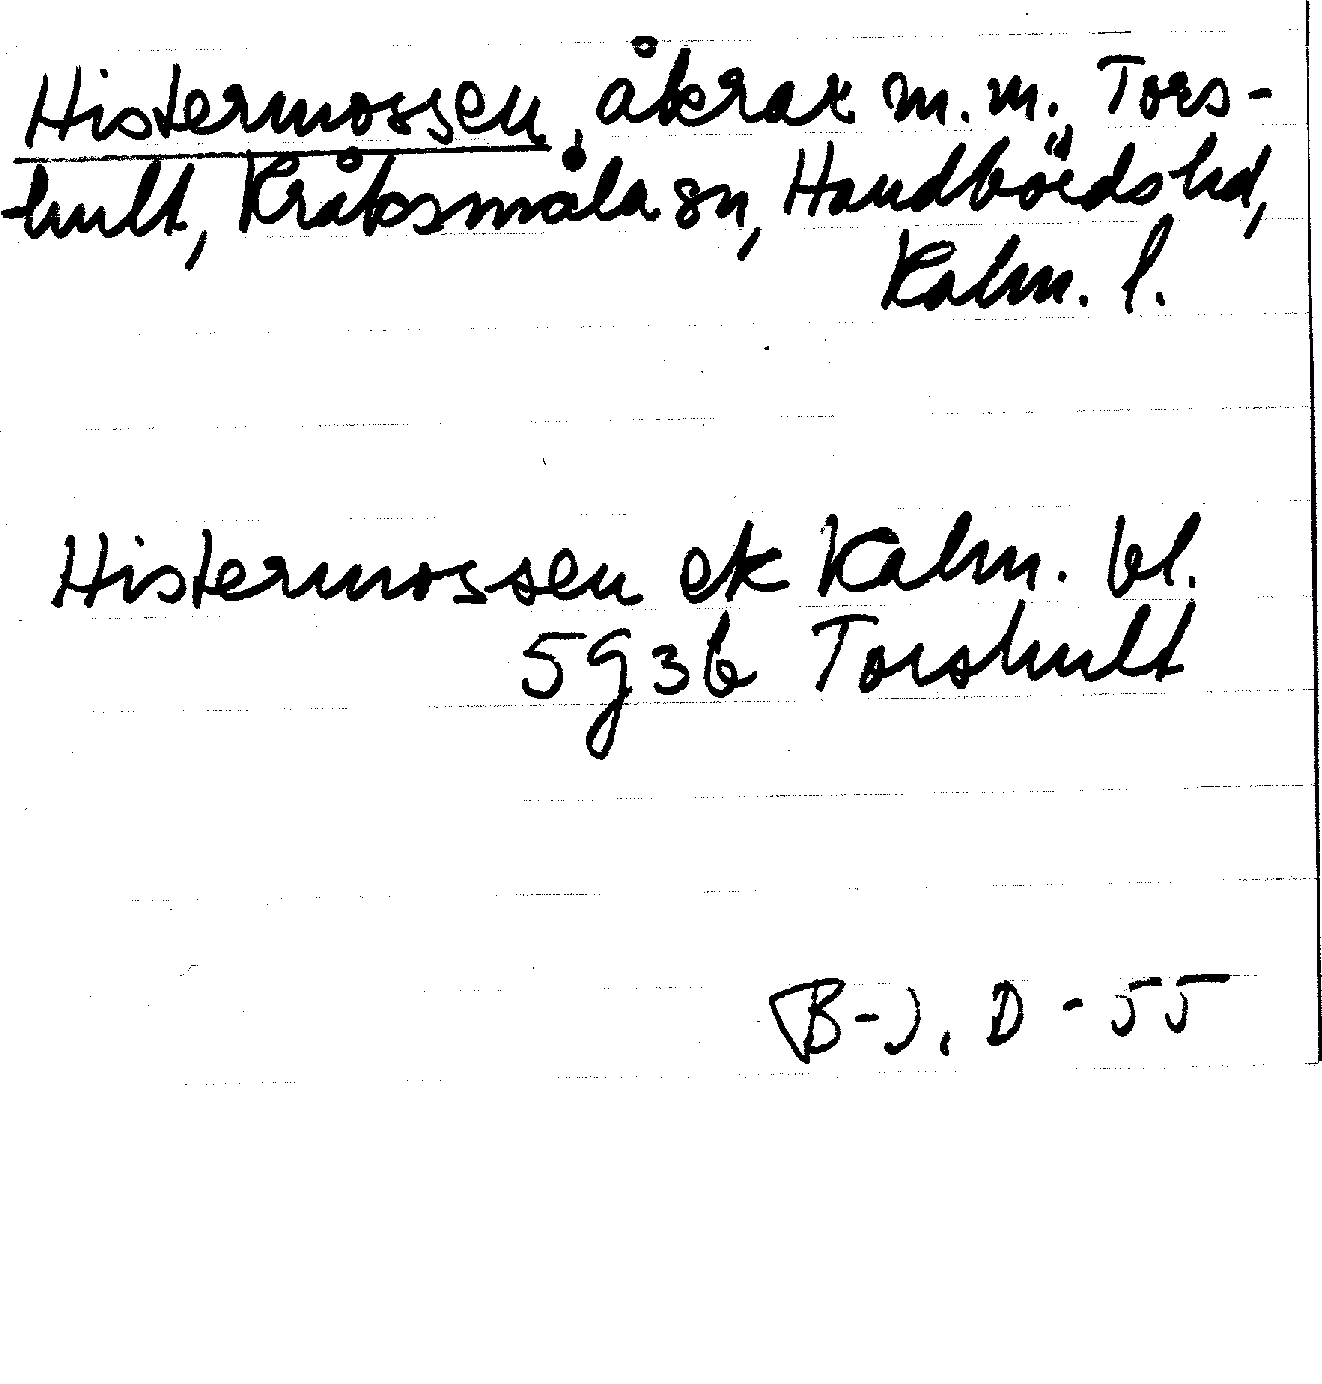 Histermossen, åkrar m.m., Tors-
hult, Kråksmåla sn, Handbörds hd,
Kalm. l.
Histermossen ek Kalm. bl.
5G3b Torshult
B-J, D - 55